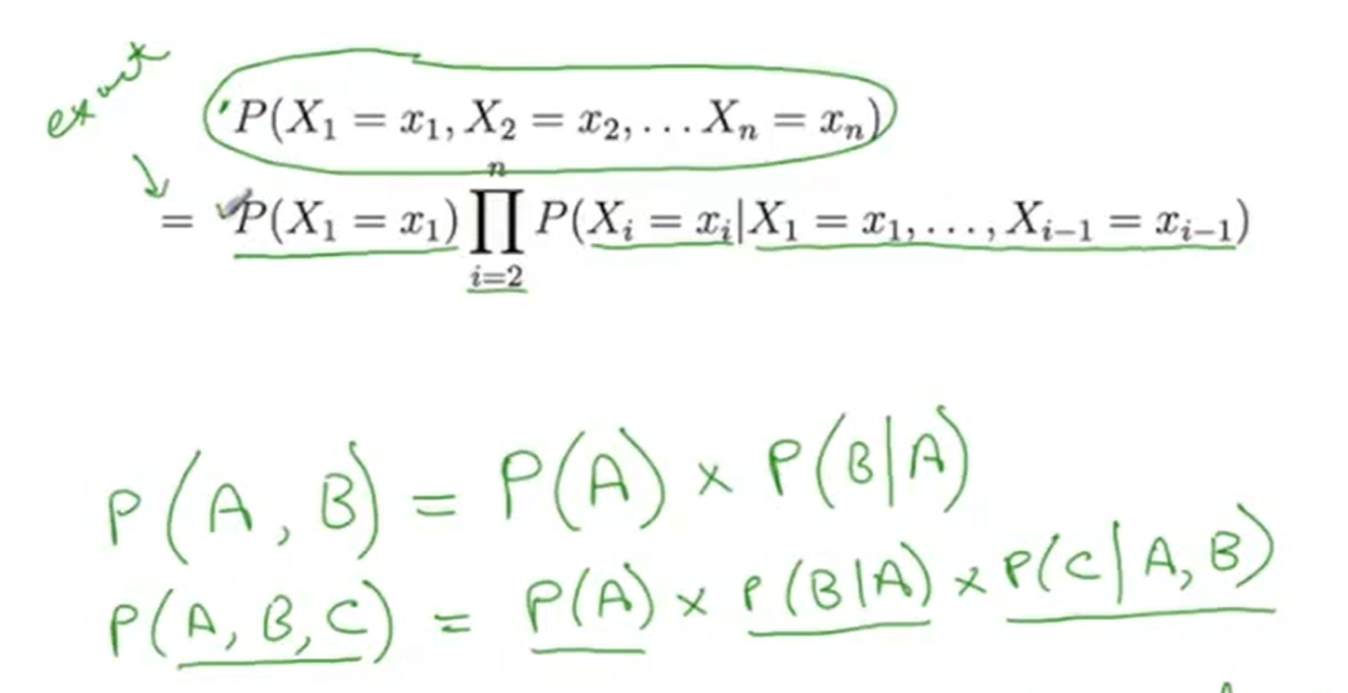 exact
P(X₁ = x₁, X₂ = x₂, … Xₙ = xₙ)
= P(X₁ = x₁) ∏ⁿᵢ₌₂ P(Xᵢ = xᵢ|X₁ = x₁, …, Xᵢ₋₁ = xᵢ₋₁)
P(A, B) = P(A) × P(B|A)
P(A, B, C) = P(A) × P(B|A) × P(C|A, B)